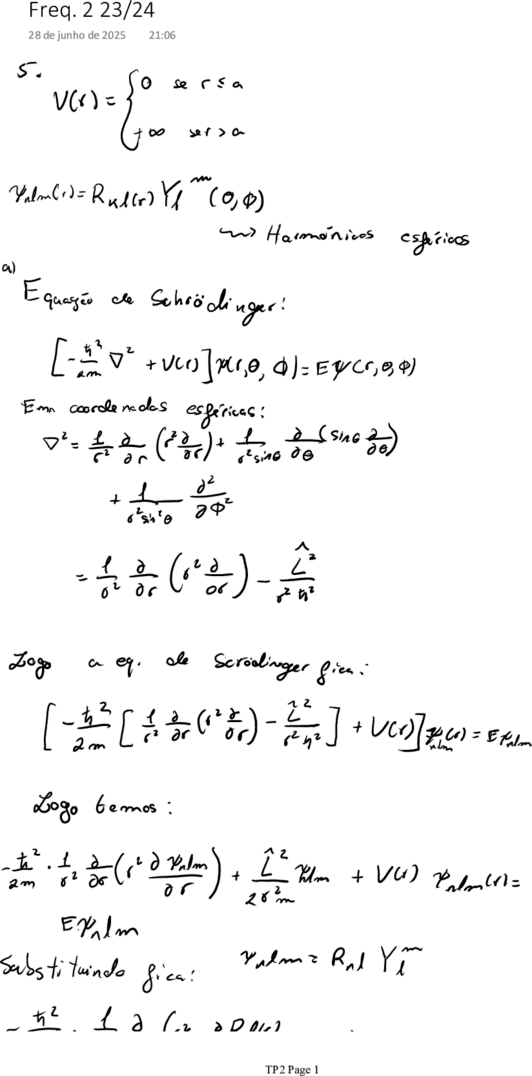 Freq. 2 23/24
28 de junho de 2025 21:06
5.
V(r) = { 0 se r ≤ a
+∞ se r > a
ψnlm(r) = Rnl(r) Yl^m (θ, ϕ)
↝ Harmónicos esféricos
a)
Equação de Schrödinger:
[-ħ²/2m ∇² + V(r)] ψ(r, θ, ϕ) = E ψ(r, θ, ϕ)
Em coordenadas esféricas:
∇² = 1/r² ∂/∂r (r² ∂/∂r) + 1/(r² sinθ) ∂/∂θ (sinθ ∂/∂θ)
+ 1/(r² sin²θ) ∂²/∂ϕ²
= 1/r² ∂/∂r (r² ∂/∂r) - L̂²/(r² ħ²)
Logo a eq. de Scrodinger fica:
[-ħ²/2m [1/r² ∂/∂r (r² ∂/∂r) - L̂²/(r² ħ²)] + V(r)] ψnlm(r) = E ψnlm
Logo temos:
-ħ²/2m · 1/r² ∂/∂r (r² ∂ψnlm/∂r) + L̂²/(2r²m) ψnlm + V(r) ψnlm(r) =
E ψnlm
Substituindo fica: ψnlm = Rnl Yl^m